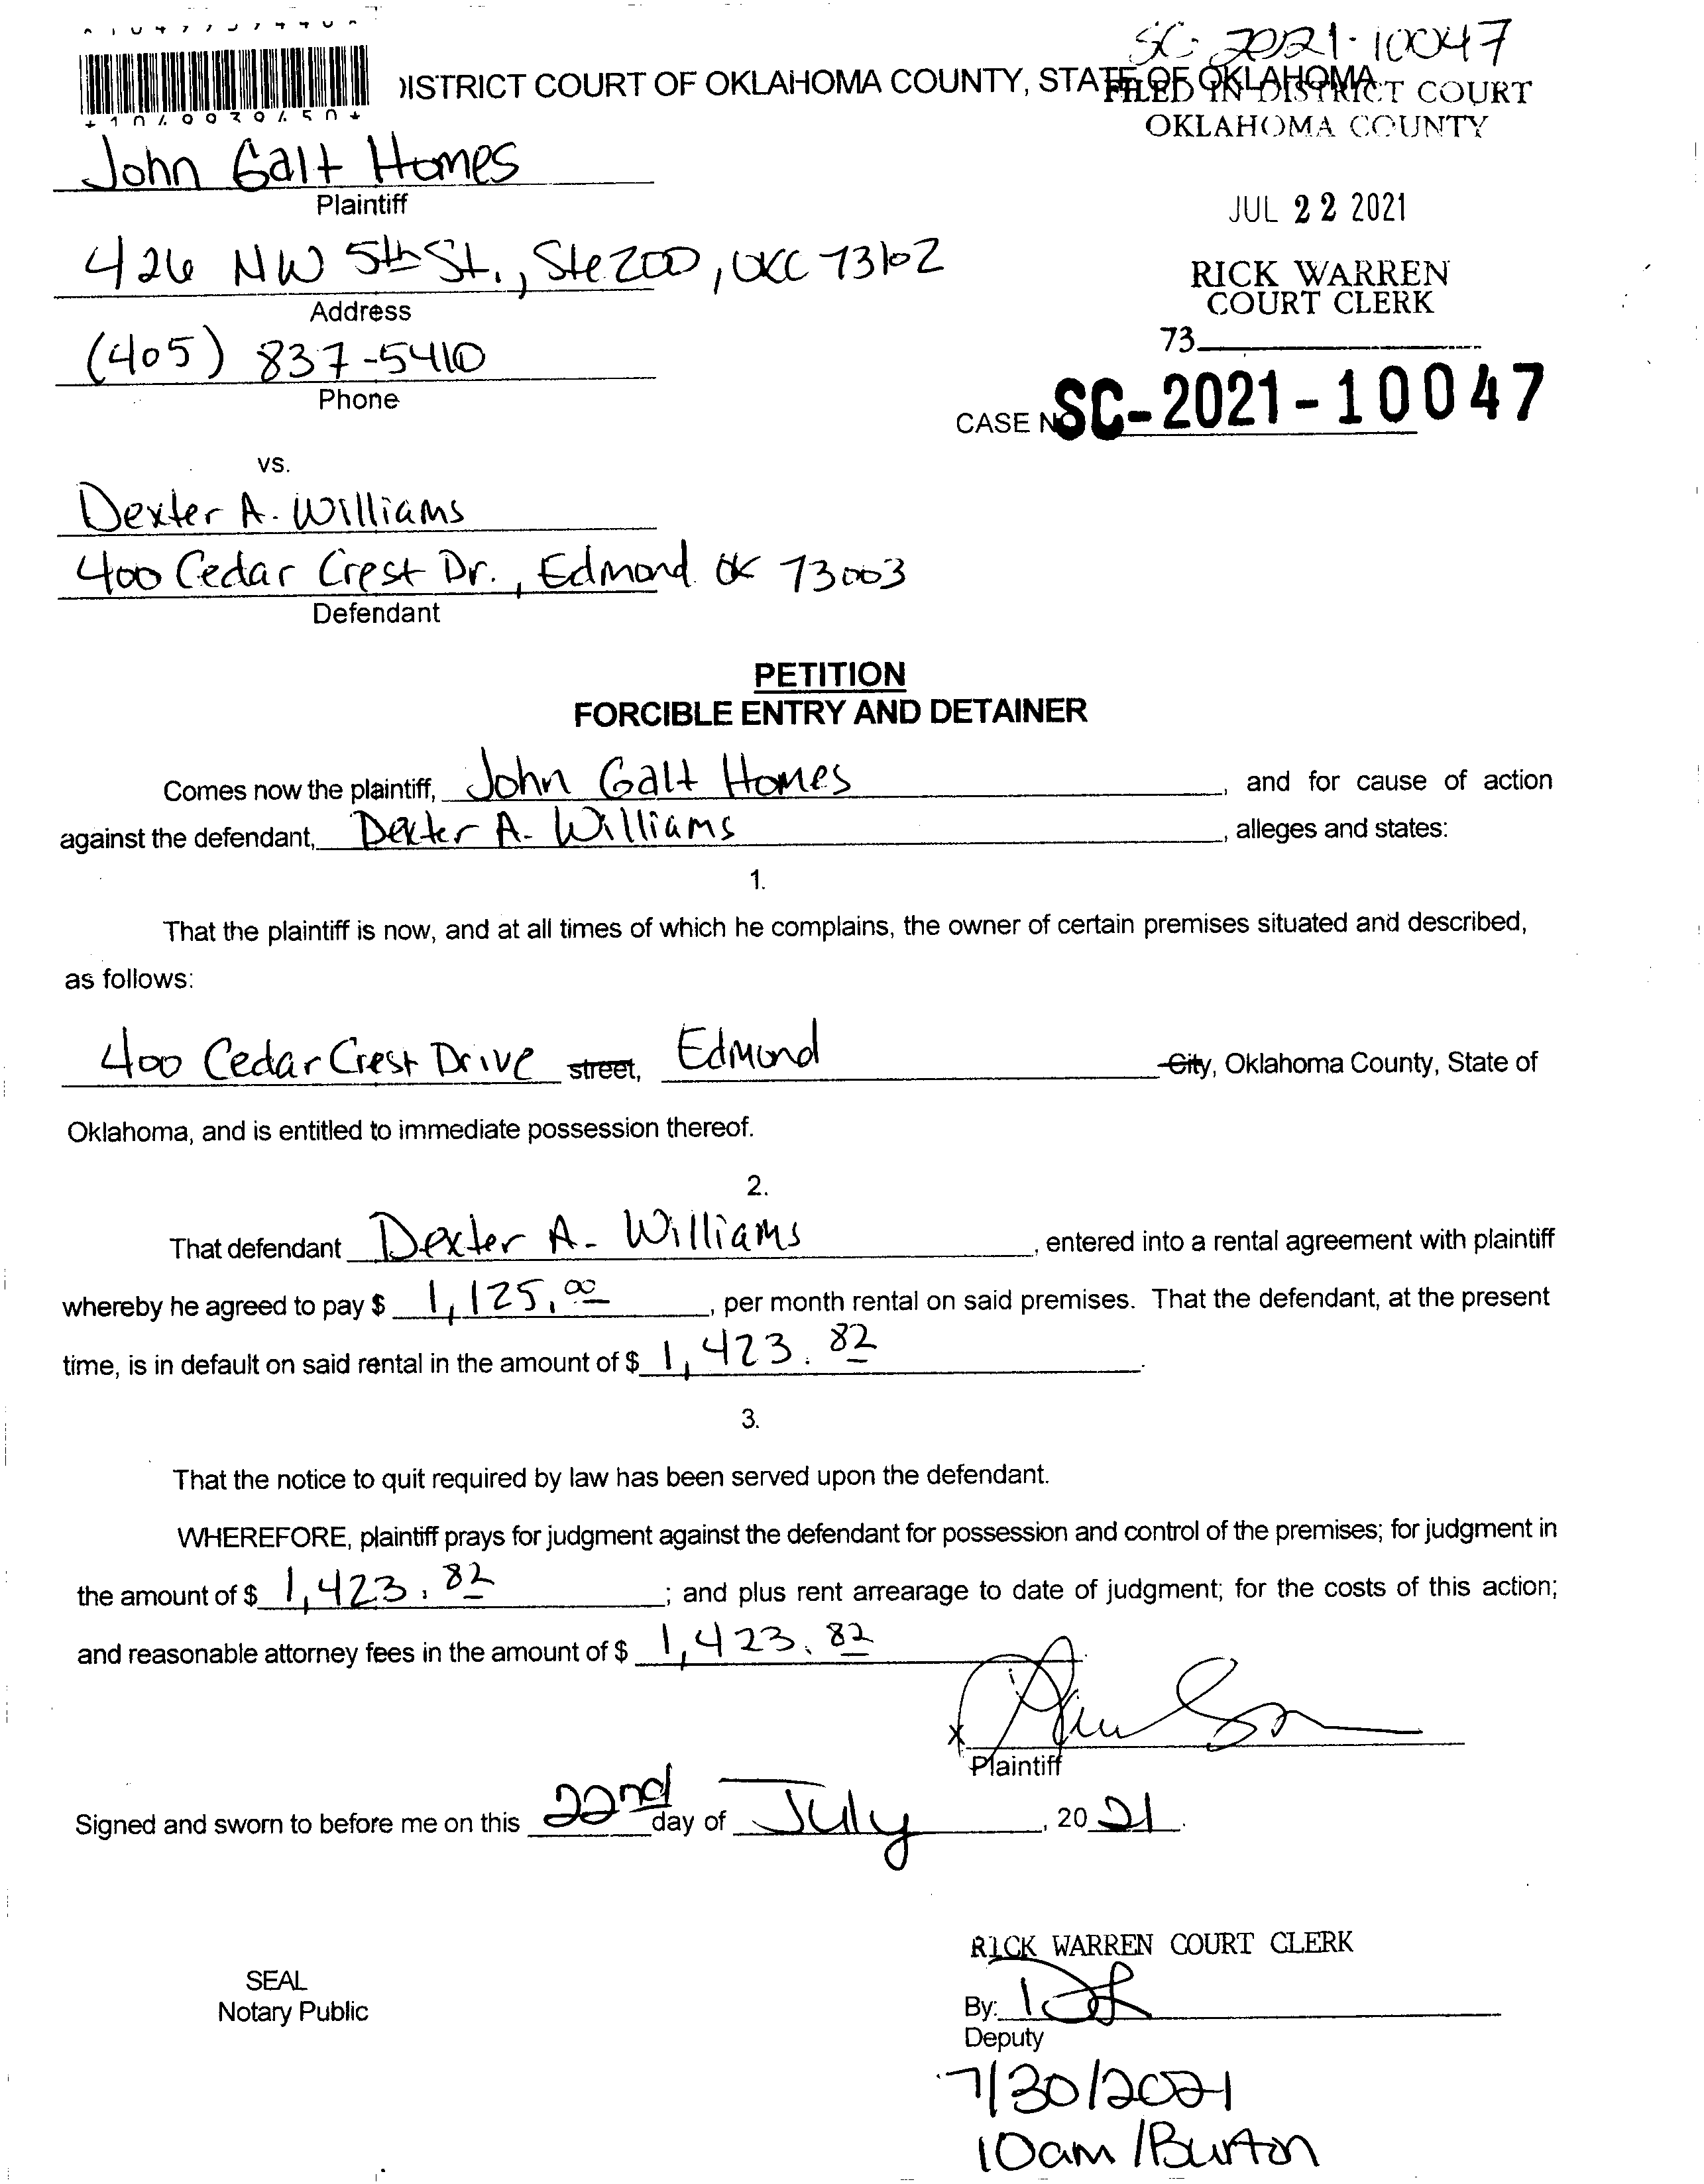 SC-2021-10047
DISTRICT COURT OF OKLAHOMA COUNTY, STATE OF OKLAHOMA
FILED IN DISTRICT COURT
OKLAHOMA COUNTY
John Galt Homes
Plaintiff
JUL 22 2021
426 NW 5th St., Ste 200, OKC 73102
Address
RICK WARREN
COURT CLERK
(405) 837-5410
Phone
73
CASE NO SC-2021-10047
vs.
Dexter A. Williams
400 Cedar Crest Dr., Edmond OK 73003
Defendant
PETITION
FORCIBLE ENTRY AND DETAINER
Comes now the plaintiff, John Galt Homes, and for cause of action
against the defendant, Dexter A. Williams, alleges and states:
1.
That the plaintiff is now, and at all times of which he complains, the owner of certain premises situated and described,
as follows:
400 Cedar Crest Drive street, Edmond City, Oklahoma County, State of
Oklahoma, and is entitled to immediate possession thereof.
2.
That defendant Dexter A. Williams, entered into a rental agreement with plaintiff
whereby he agreed to pay $ 1,125.00, per month rental on said premises. That the defendant, at the present
time, is in default on said rental in the amount of $ 1,423.82.
3.
That the notice to quit required by law has been served upon the defendant.
WHEREFORE, plaintiff prays for judgment against the defendant for possession and control of the premises; for judgment in
the amount of $ 1,423.82; and plus rent arrearage to date of judgment; for the costs of this action;
and reasonable attorney fees in the amount of $ 1,423.82
x
Plaintiff
Signed and sworn to before me on this 22nd day of July, 2021.
RICK WARREN COURT CLERK
SEAL
Notary Public
By:
Deputy
7/30/2021
10am/Burton